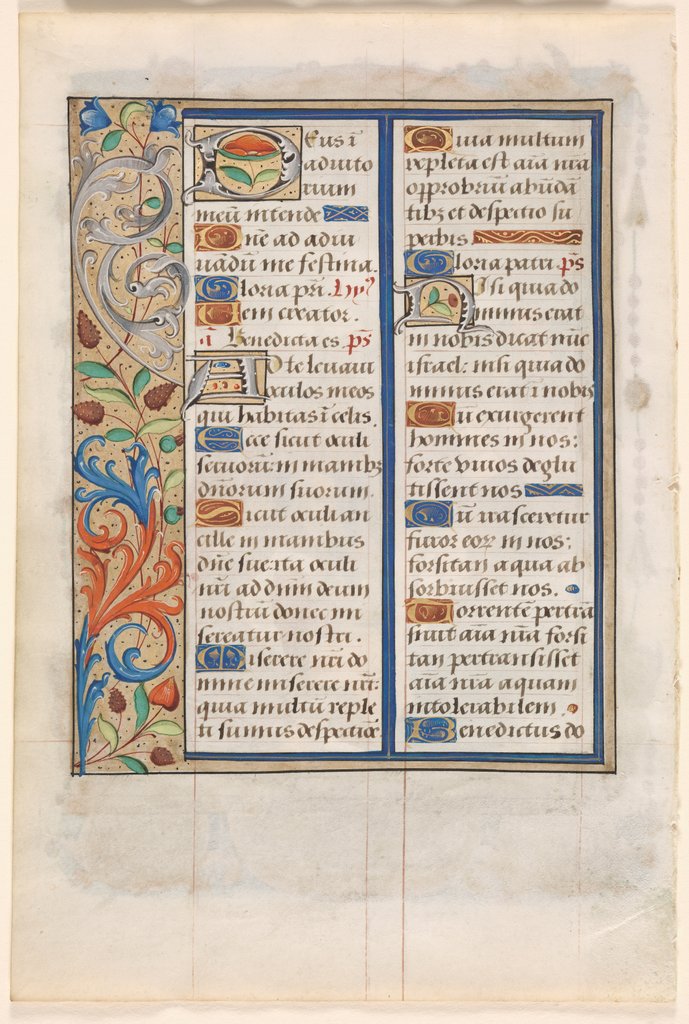 Deus ī
adiuto
rium
meū intende
Dne ad adiu
uādū me festina.
Gloria pr̄i. hỹ
Uem creator.
añ Benedicta es ps̄
Ad te leuaui
oculos meos
qui habitas ī celis.
Ecce sicut oculi
seruorū: in manibz
dn̄orum suorum.
Sicut oculi an
cille in manibus
dn̄e sue: ita oculi
nr̄i ad dn̄m deum
nostrū donec mi
sereatur nostri.
Miserere nr̄i do
mine miserere nr̄i:
quia multū reple
ti sumus despectiōe.
Quia multum
repleta est aīa nr̄a
opprobriū abūdā
tibz et despectio su
perbis
Gloria patri ps̄
Nisi quia do
minus erat
in nobis dicat nūc
israel: nisi quia do
minus erat ī nobis
Cū exurgerent
homines in nos:
forte viuos deglu
tissent nos
Cū irasceretur
furor eoꝝ in nos:
forsitan aqua ab
sorbuisset nos.
Torrentē pertrā
siuit aīa nr̄a forsi
tan pertransisset
aīa nr̄a aquam
intolerabilem.
Benedictus do